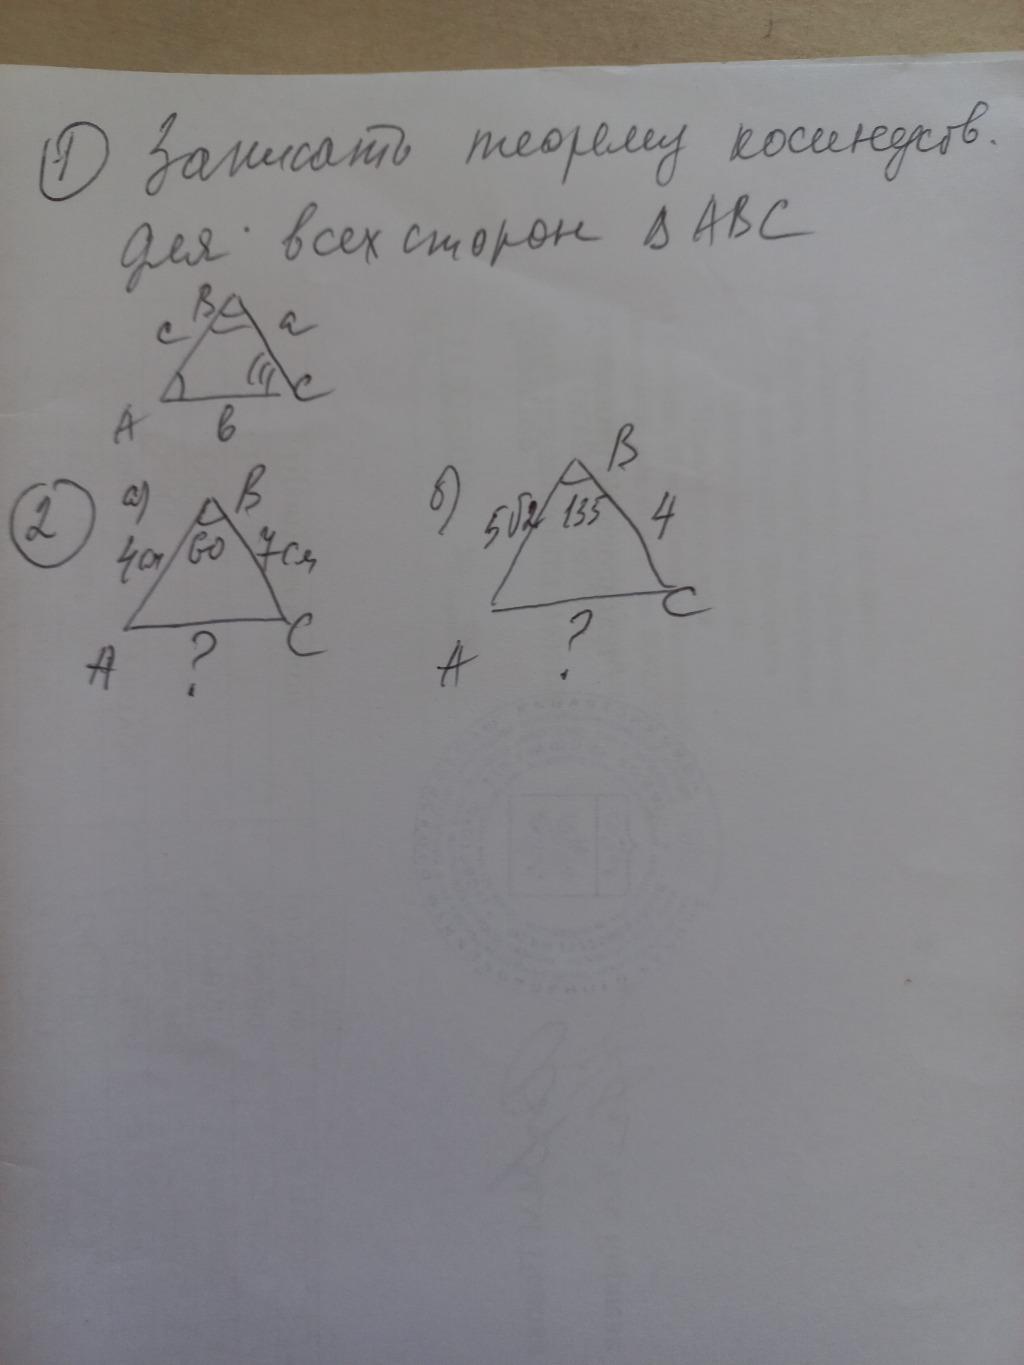 1 Записать теорему косинусов.
для всех сторон Δ ABC
B
c a
A C
в
2 а) B
4см 60 7см
A ? C
б) B
5√2 135 4
A ? C